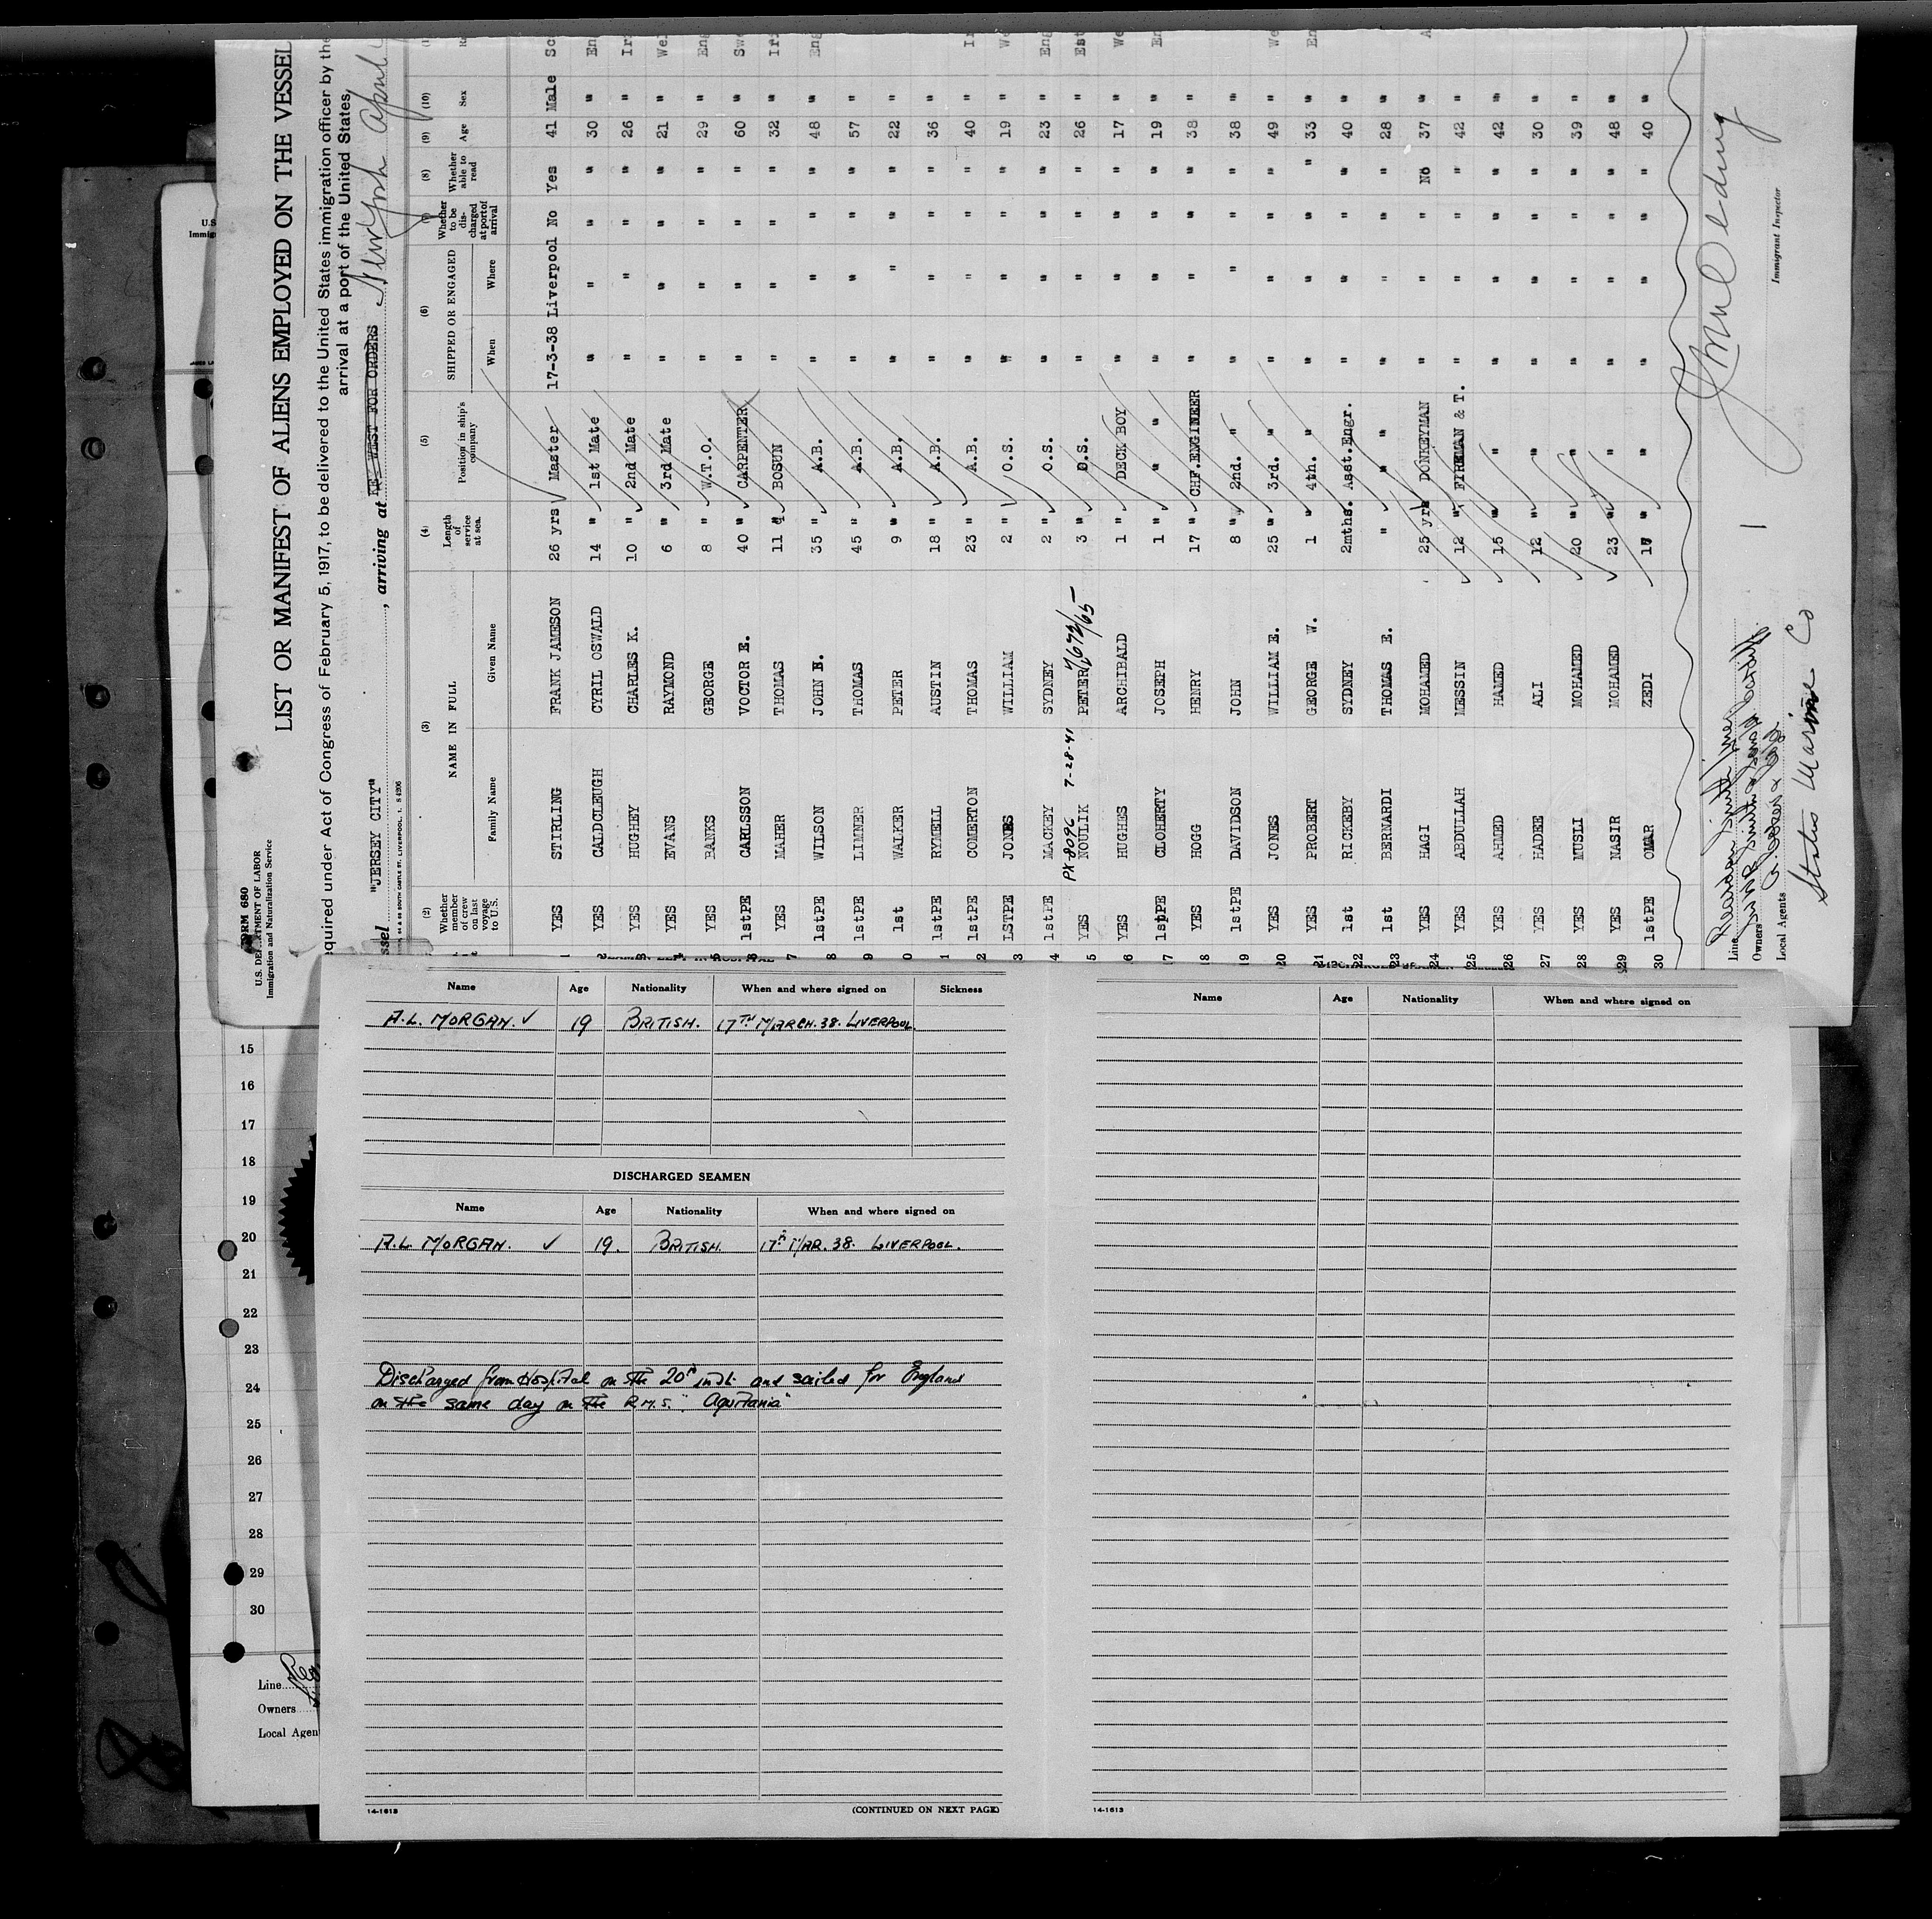 FORM 680
U.S. DEPARTMENT OF LABOR
Immigration and Naturalization Service
LIST OR MANIFEST OF ALIENS EMPLOYED ON THE VESSEL
equired under Act of Congress of February 5, 1917, to be delivered to the United States immigration officer by the
arrival at a port of the United States
ssel "JERSEY CITY", arriving at KEY WEST FOR ORDERS New York April
(2) (3) (4) (5) (6) (8) (9) (10)
Whether member of crew on last voyage to U.S. NAME IN FULL Family Name Given Name Length of service at sea. Position in ship's company SHIPPED OR ENGAGED When Where Whether to be discharged at port of arrival Whether able to read Age Sex
1 YES STIRLING FRANK JAMESON 26 yrs Master 17-3-38 Liverpool No Yes 41 Male Sc
2 YES CALDCLEUGH CYRIL OSWALD 14 " 1st Mate " " " " 30 " En
3 YES HUGHEY CHARLES K. 10 " 2nd Mate " " " " 26 " Iri
4 YES EVANS RAYMOND 6 " 3rd Mate " " " " 21 " Wel
5 YES BANKS GEORGE 8 " W.T.O. " " " " 29 " Eng
6 1stPE CARLSSON VOCTOR E. 40 " CARPENTER " " " " 60 " Swe
7 YES MAHER THOMAS 11 " BOSUN " " " " 32 " Iri
8 1stPE WILSON JOHN N. 35 " A.B. " " " " 48 " Eng
9 1stPE LIMNER THOMAS 45 " A.B. " " " " 57 "
0 1st WALKER PETER 9 " A.B. " " " " 22 "
1 1stPE RYMELL AUSTIN 18 " A.B. " " " " 36 "
2 1stPE COMERTON THOMAS 23 " A.B. " " " " 40 " I
3 LSTPE JONES WILLIAM 2 " O.S. " " " " 19 " We
4 1stPE MACKEY SYDNEY 2 " O.S. " " " " 23 " Eng
PX 8096 7-28-41 4672/65
5 YES NOULIK PETER 3 " O.S. " " " " 26 " Est
6 YES HUGHES ARCHIBALD 1 " DECK BOY " " " " 17 " We
17 1stPE CLOHERTY JOSEPH 1 " " " " " " 19 " En
18 YES HOGG HENRY 17 " CHF.ENGINEER " " " " 38 "
19 1stPE DAVIDSON JOHN 8 " 2nd. " " " " " 38 "
20 YES JONES WILLIAM E. 25 " 3rd. " " " " " 49 " We
21 YES PROBERT GEORGE W. 1 " 4th. " " " " " 33 " En
22 1st RICKEBY SYDNEY 2mths. Asst.Engr. " " " " 40 "
23 1st BERNARDI THOMAS E. " " " " " " " 28 "
24 YES HAGI MOHAMED 25 yrs DONKEYMAN " " " No 37 " A
25 YES ABDULLAH MESSIN 12 " FIREMAN & T. " " " " 42 "
26 YES AHMED HAMED 15 " " " " " " 42 "
27 YES HADEE ALI 12 " " " " " " 30 "
28 YES MUSLI MOHAMED 20 " " " " " " 39 "
29 YES NASIR MOHAMED 23 " " " " " " 48 "
30 1stPE OMAR ZEDI " " " " " " 40 "
Line Reardon Smith Line
Owners
Local Agents
States Marine Co
Immigrant Inspector
Name Age Nationality When and where signed on Sickness
A.L. MORGAN. ✓ 19 BRITISH. 17TH MARCH. 38. LIVERPOOL.
DISCHARGED SEAMEN
Name Age Nationality When and where signed on
A.L. MORGAN. ✓ 19. BRITISH. 17th MAR. 38. LIVERPOOL.
Discharged from Hospital on the 20th inst. and sailed for England
on the same day on the R.M.S. "Aquitania"
14-1613 (CONTINUED ON NEXT PAGE)
Name Age Nationality When and where signed on
14-1613
15
16
17
18
19
20
21
22
23
24
25
26
27
28
29
30
Line
Owners
Local Agen